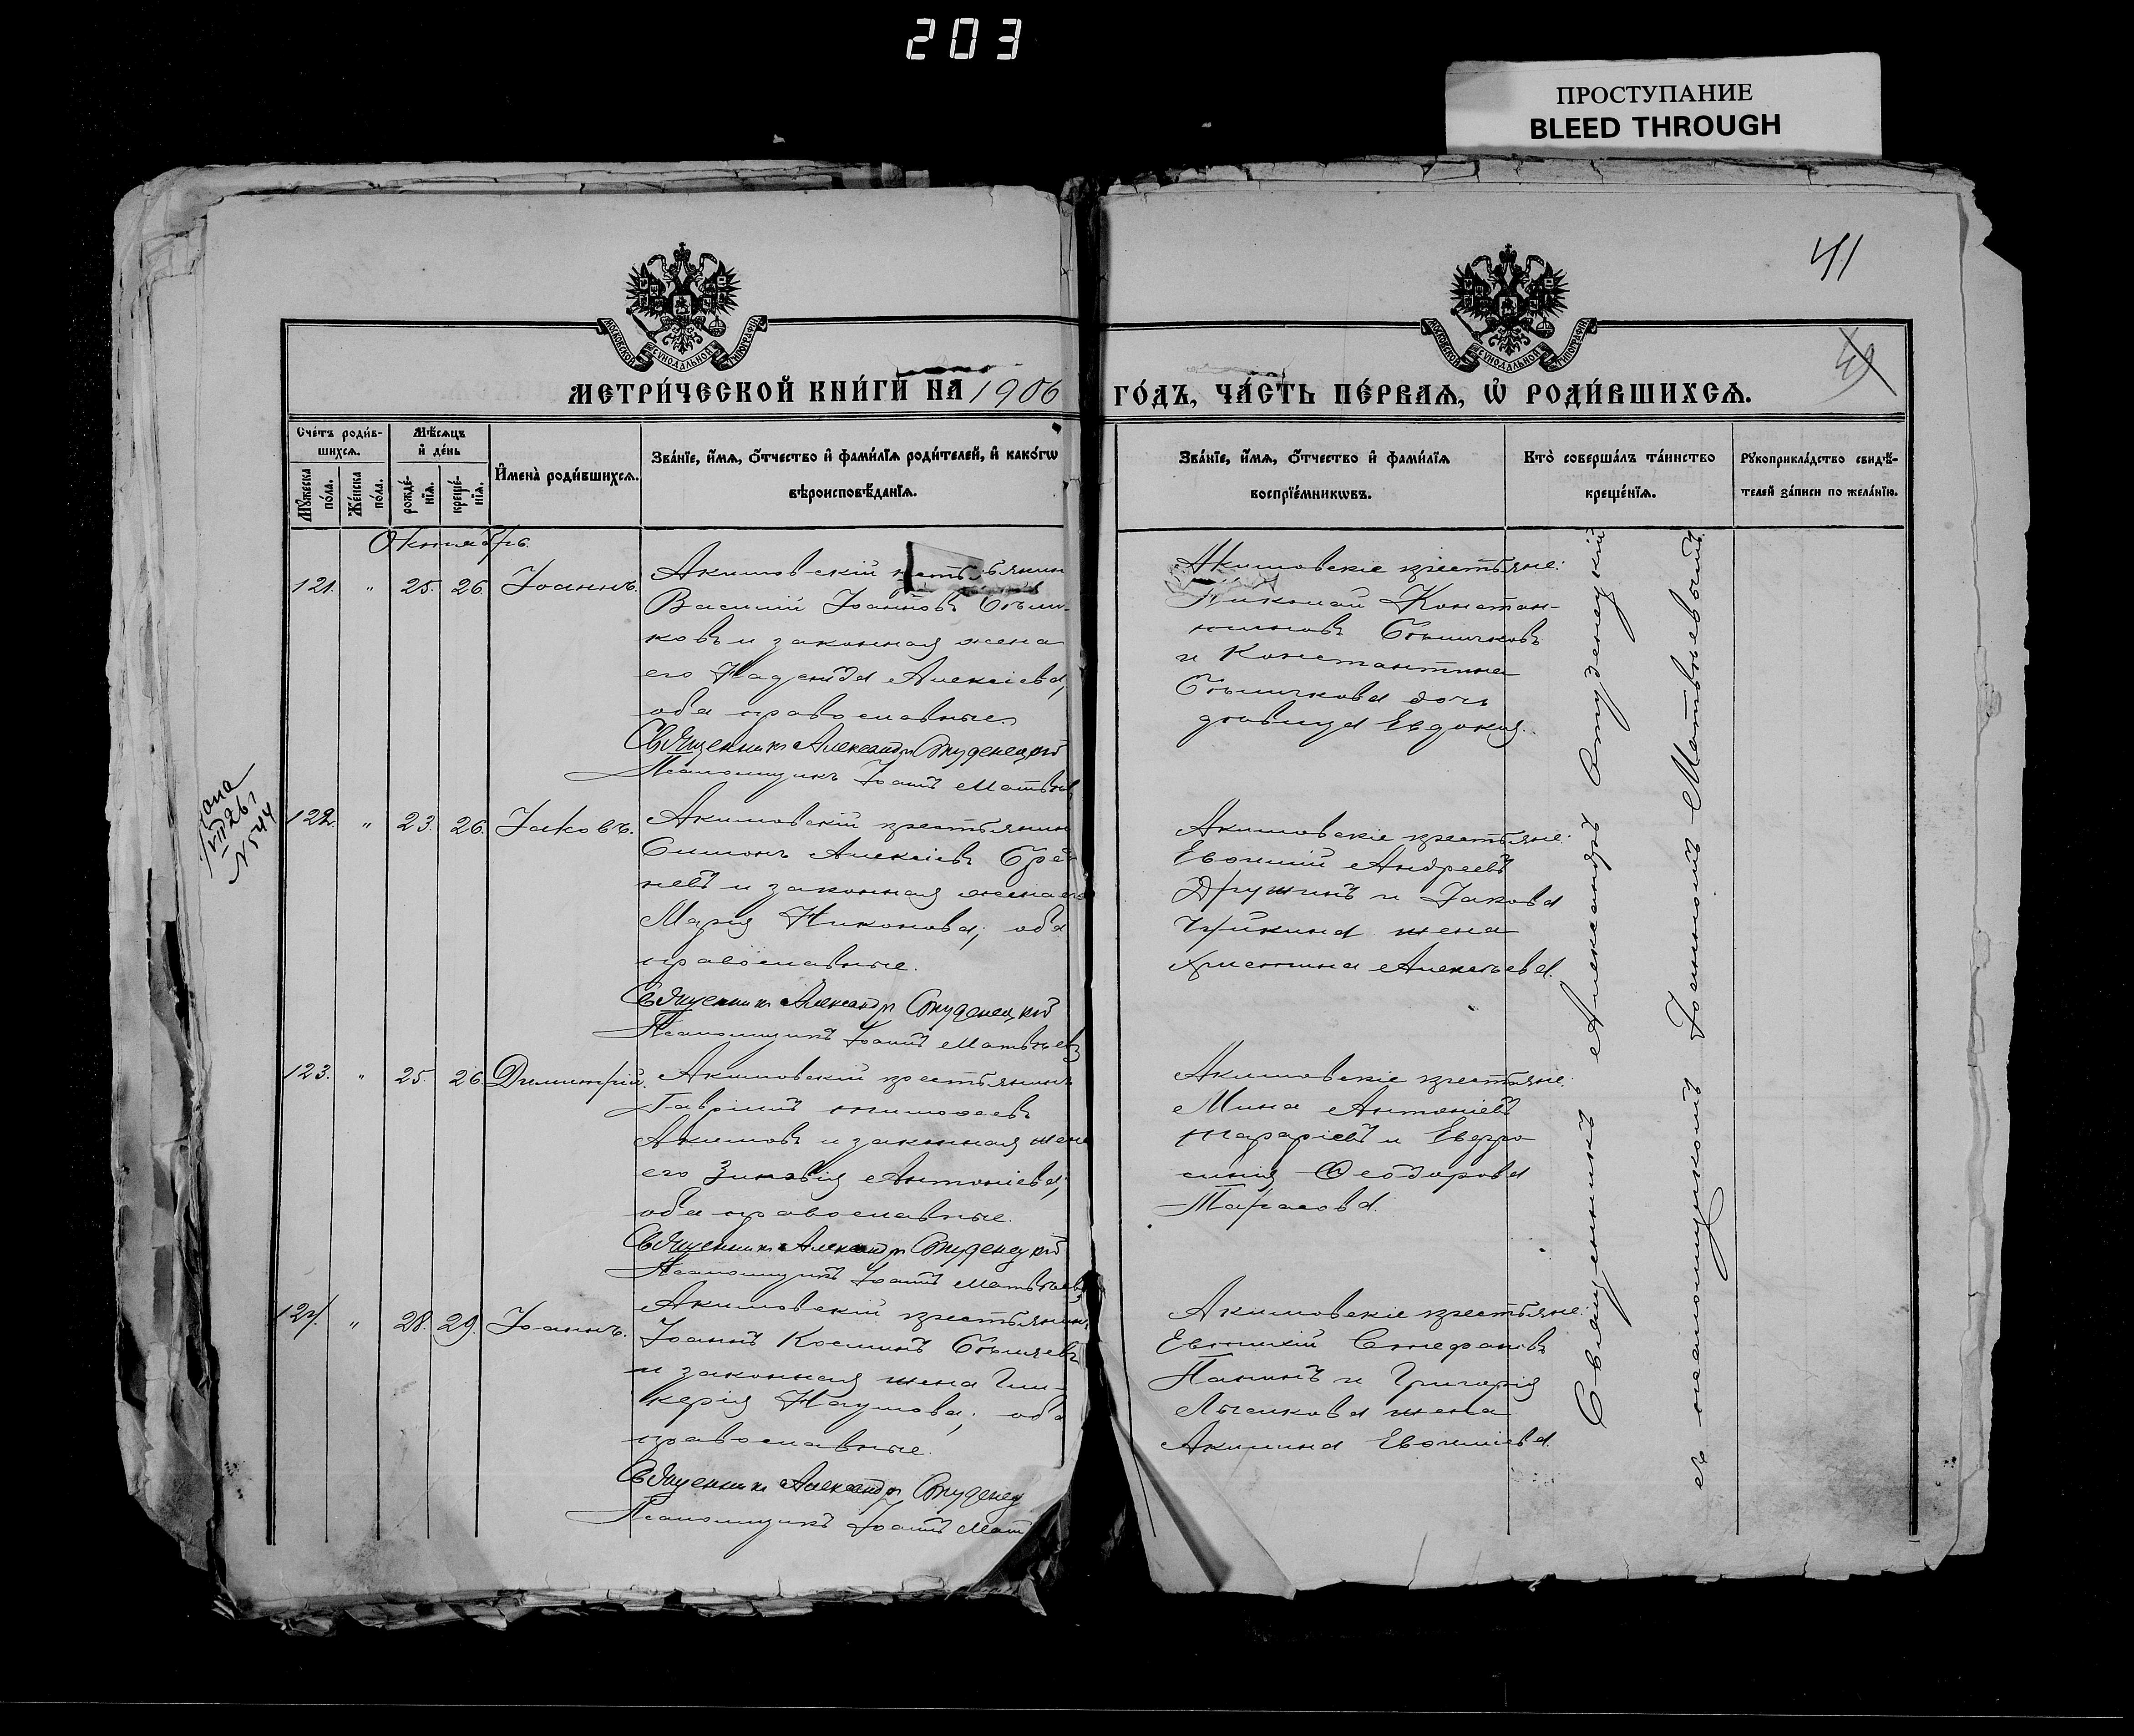 203
ПРОСТУПАНИЕ
BLEED THROUGH
41
МОСКОВСКОЙ СѴНОДАЛЬНОЙ ТИПОГРАФІИ
МОСКОВСКОЙ СѴНОДАЛЬНОЙ ТИПОГРАФІИ
МЕТРИ́ЧЕСКОЙ КНИ́ГИ НА 1906 ГО́ДЪ, ЧА́СТЬ ПЕ́РВАѦ, Ѡ҆ РОДИ́ВШИХСѦ.
Сче́тъ роди́в-
шихсѧ.
Мꙋ́жеска по́ла.
Же́нска по́ла.
Мѣ́сѧцъ
и҆ де́нь
рожде́-
нїѧ.
креще́-
нїѧ.
И҆мена̀ роди́вшихсѧ.
Зва́нїе, и҆́мѧ, ѻ҆́тчество и҆ фами́лїѧ роди́телей, и҆ како́гѡ
вѣроисповѣ́данїѧ.
Зва́нїе, и҆́мѧ, ѻ҆́тчество и҆ фами́лїѧ
воспрїе́мникѡвъ.
Кто̀ соверша́лъ та́инство
креще́нїѧ.
Рꙋкоприкла́дство свидѣ́-
телей за́писи по жела́нїю.
Октябрь
121. " 25. 26. Іоаннъ.
Акимовскій крестьянин
Василій Іоанновъ
ковъ и законная жена
его Надежда Алексіева,
оба православные.
Священникъ Александръ Студенецкій
Псаломщикъ Іоаннъ Матвѣевъ
Акимовскіе крестьяне:
Николай Констан-
тиновъ
и Константина
дочь
дѣвица Евдокія.
N 544
122. " 23. 26. Іаковъ.
Акимовскій крестьянин
Симонъ Алексіевъ
невъ и законная жена его
Марія Никонова; оба
православные.
Священникъ Александръ Студенецкій
Псаломщикъ Іоаннъ Матвѣевъ
Акимовскіе крестьяне:
Евѳимій Андреевъ
Дружинъ и Іакова
жена
Христина Алексѣева.
123. " 25. 26. Димитрій.
Акимовскій крестьянинъ
Гавріилъ Тимоѳеевъ
Акимовъ и законная жена
его Зиновія Антоніева;
оба православные.
Священникъ Александръ Студенецкій
Псаломщикъ Іоаннъ Матвѣевъ
Акимовскіе крестьяне:
Мина Антоніевъ
и Евфро-
синія Ѳеодорова
Тарасова.
124. " 28. 29. Іоаннъ.
Акимовскій крестьянин
Іоаннъ Косминъ
и законная жена Гли-
керія Наумова; оба
православные.
Священникъ Александръ Студенец
Псаломщикъ Іоаннъ Мат
Акимовскіе крестьяне:
Евѳимій Стефановъ
Панинъ и Григорія
жена
Акилина Евѳиміева.
Священникъ Александръ Студенецкій
съ псаломщикомъ Іоанномъ Матвѣевымъ.